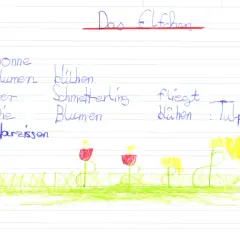 Das Elfchen
onne
lumen blühen
er Schmetterling fliegt
ie Blumen blühen : Tulp
arzissen